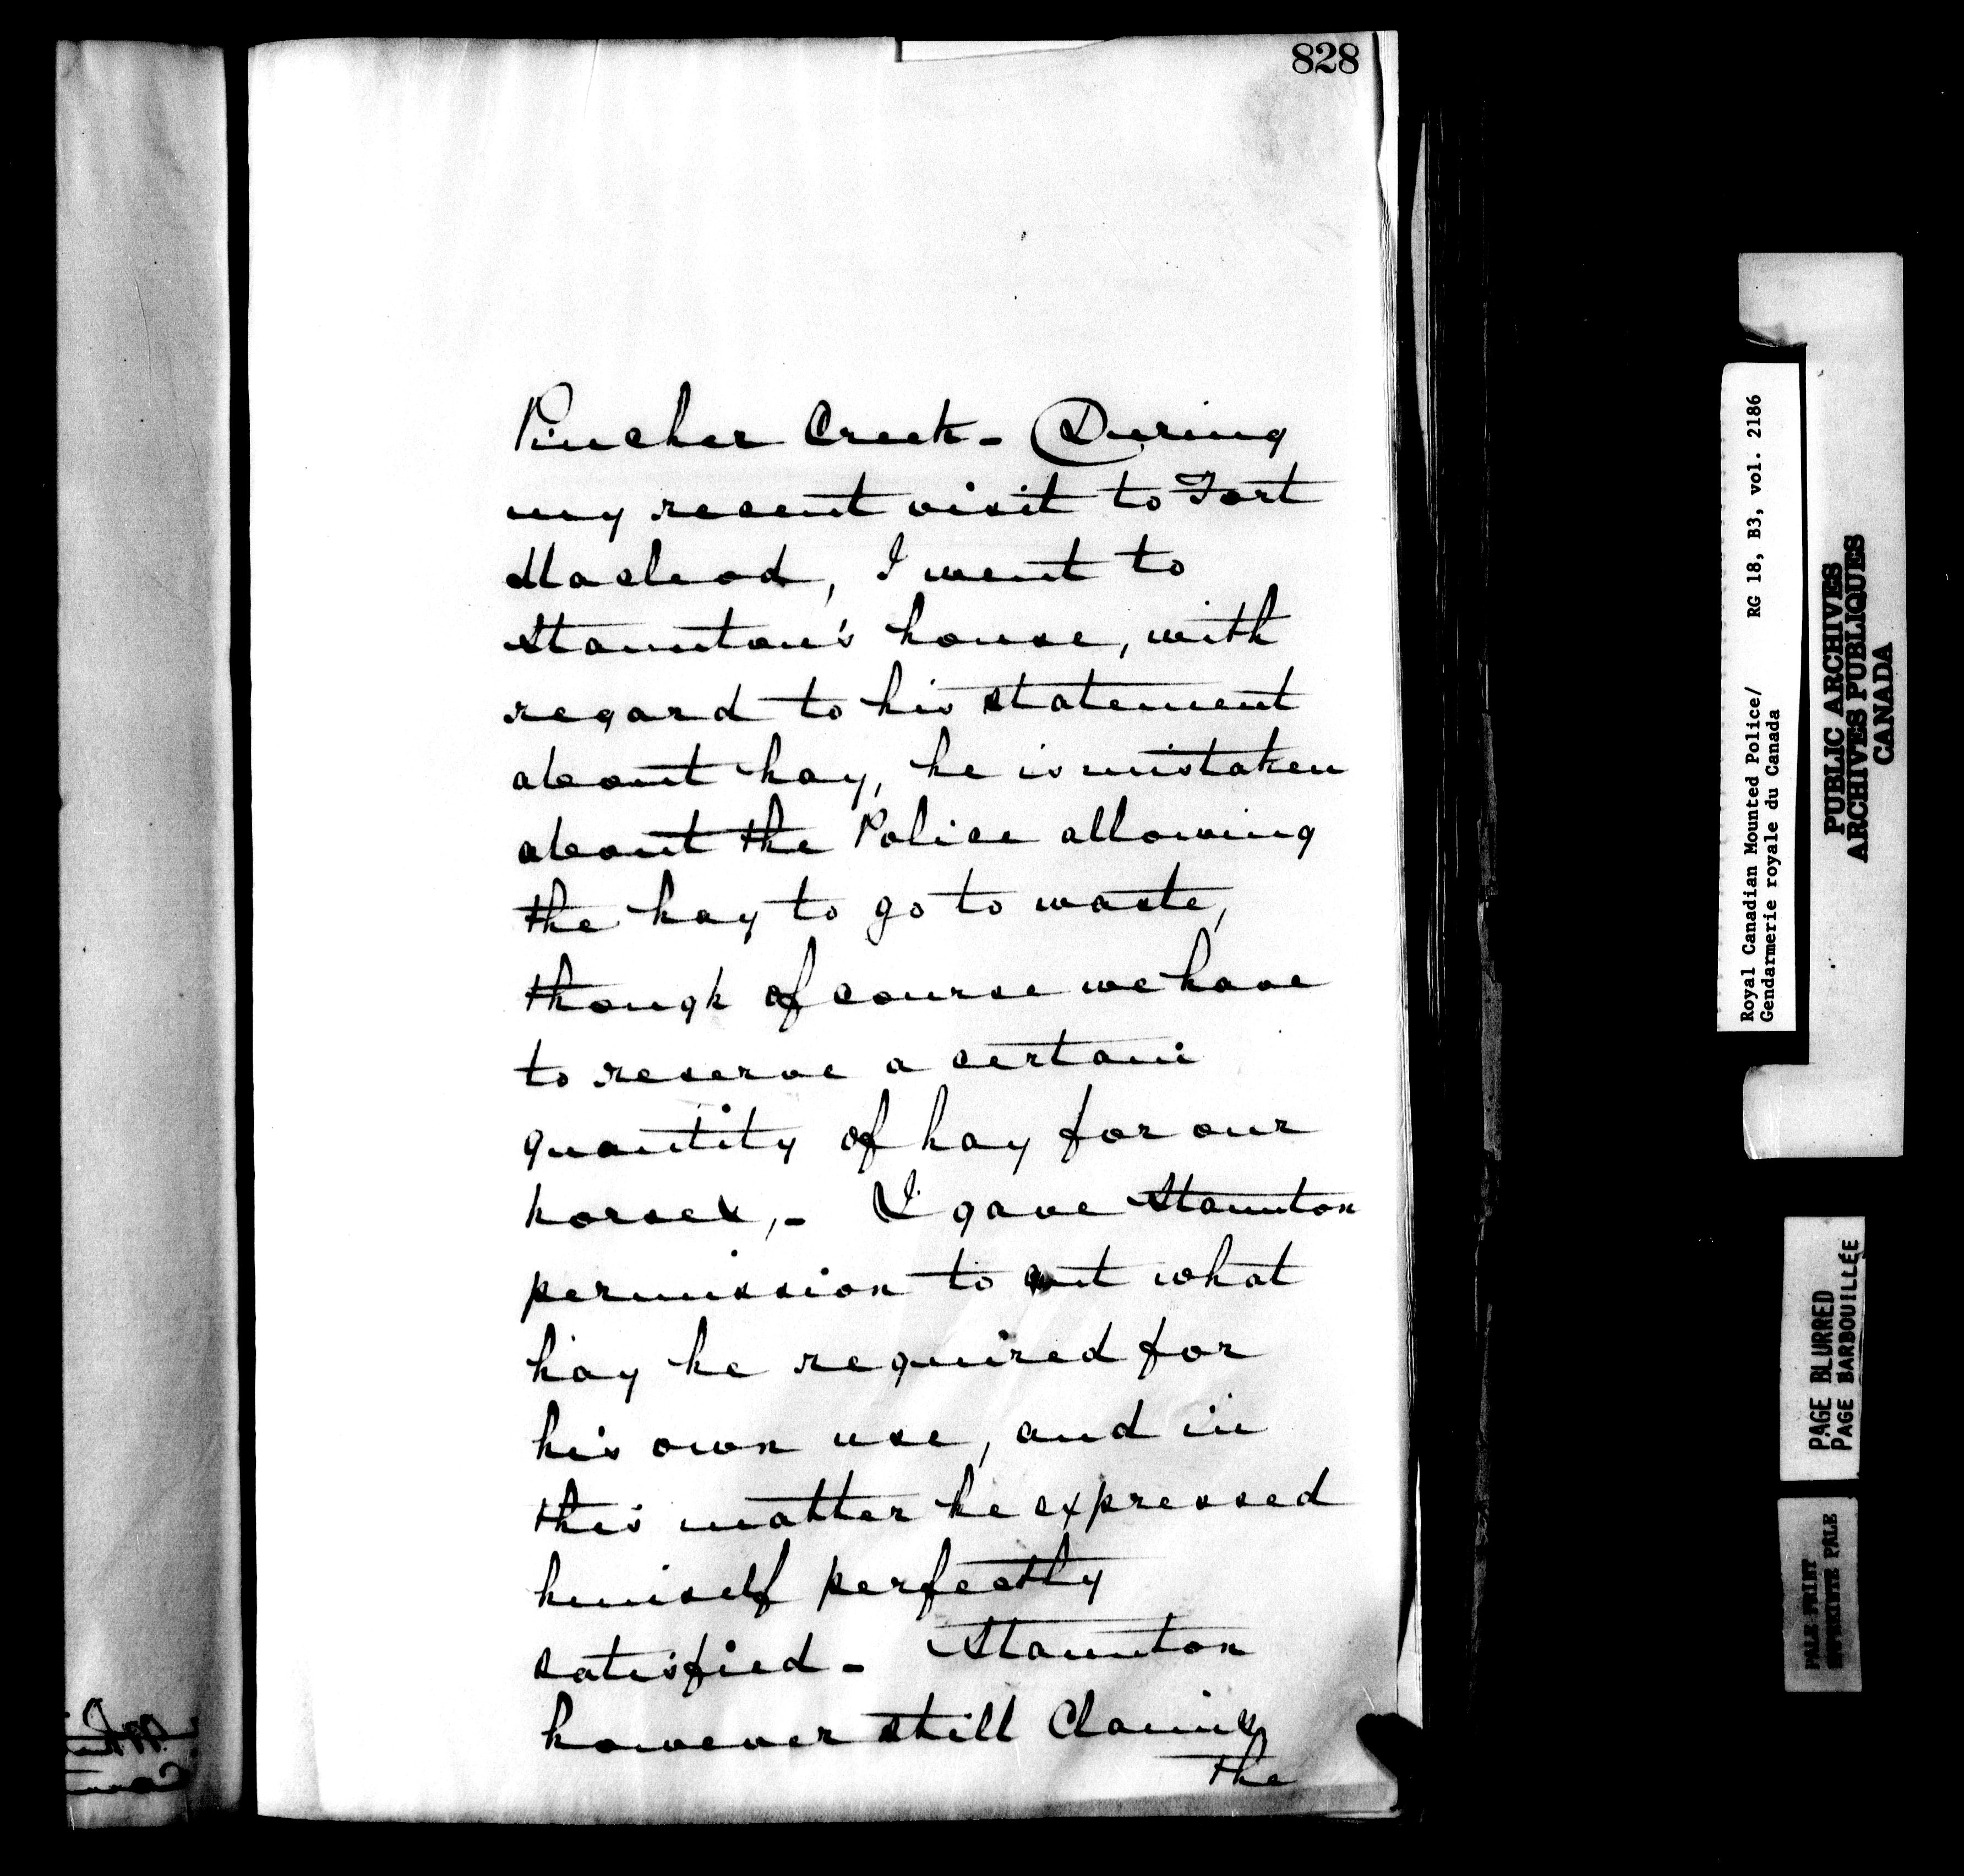 828
Pincher Creek - During
my recent visit to Fort
Macleod, I went to
Staunton's house, with
regard to his statement
about hay, he is mistaken
about the Police allowing
the hay to go to waste,
though of course we have
to reserve a certain
quantity of hay for our
horses, - I gave Staunton
permission to cut what
hay he required for
his own use, and in
this matter he expressed
himself perfectly
satisfied - Staunton
however still Claims
the
Royal Canadian Mounted Police/ RG 18, B3, vol. 2186
Gendarmerie royale du Canada
PUBLIC ARCHIVES
ARCHIVES PUBLIQUES
CANADA
PAGE BLURRED
PAGE BARBOUILLÉE
PALE PRINT
IMPRIMÉE PALE